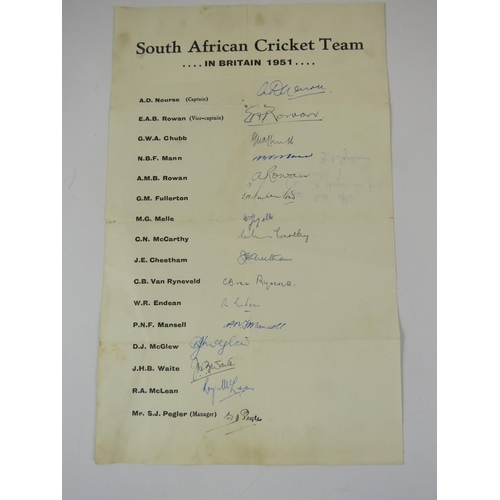 South African Cricket Team
....IN BRITAIN 1951....
A.D. Nourse (Captain) A D Nourse
E.A.B. Rowan (Vice-captain) E A B Rowan
G.W.A. Chubb GWA Chubb
N.B.F. Mann
A.M.B. Rowan A Rowan
G.M. Fullerton
M.G. Melle
C.N. McCarthy
J.E. Cheetham J E Cheetham
C.B. Van Ryneveld C B van Ryneveld
W.R. Endean
P.N.F. Mansell P N F Mansell
D.J. McGlew
J.H.B. Waite
R.A. McLean Roy McLean
Mr. S.J. Pegler (Manager) S J Pegler